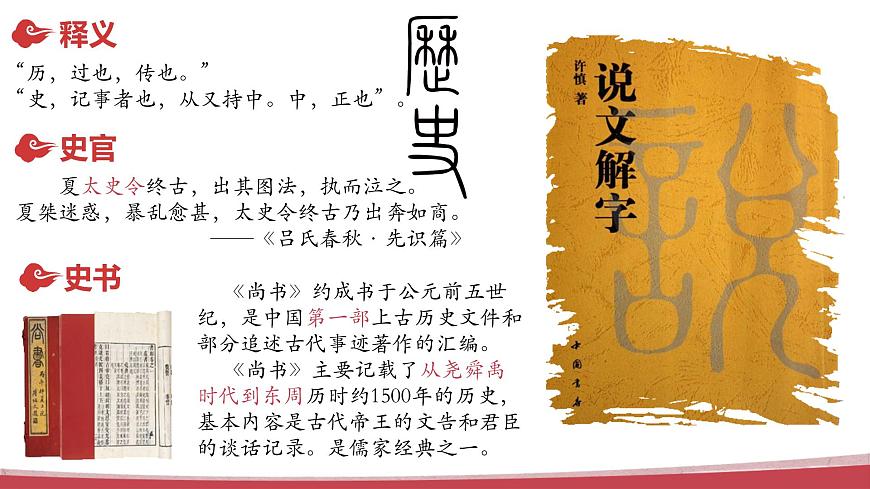 释义
“历，过也，传也。”
“史，记事者也，从又持中。中，正也”。
歷史
史官
夏太史令终古，出其图法，执而泣之。
夏桀迷惑，暴乱愈甚，太史令终古乃出奔如商。
——《吕氏春秋·先识篇》
史书
《尚书》约成书于公元前五世
纪，是中国第一部上古历史文件和
部分追述古代事迹著作的汇编。
《尚书》主要记载了从尧舜禹
时代到东周历时约1500年的历史，
基本内容是古代帝王的文告和君臣
的谈话记录。是儒家经典之一。
尚書
说文解字
许慎 著
中国书店